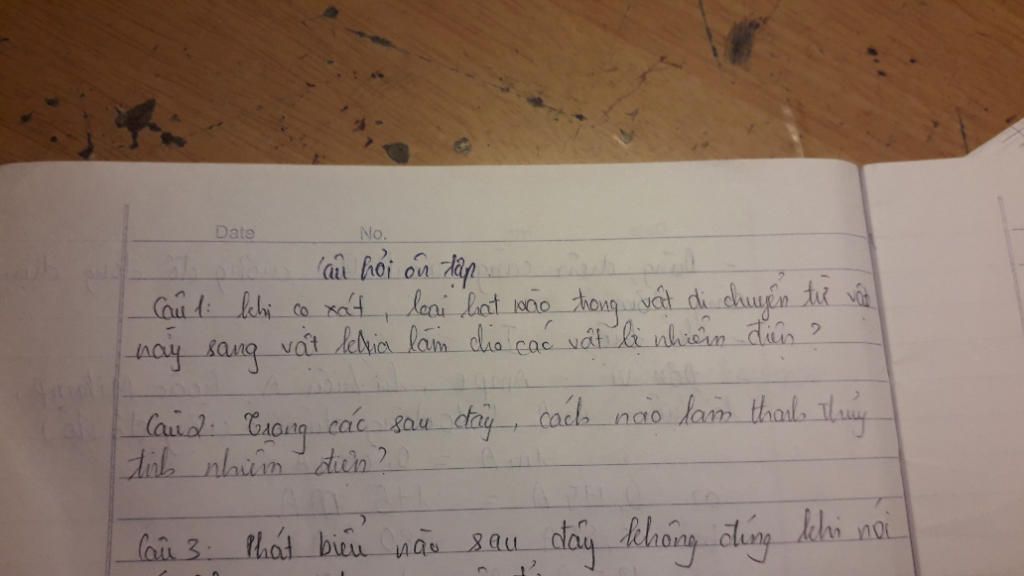 Date No.
Câu hỏi ôn tập
Câu 1: Khi cọ xát, loại hạt nào trong vật di chuyển từ vật
này sang vật khia làm cho các vật bị nhiễm điện?
Câu 2: Trong các sau đây, cách nào làm thanh thủy
tinh nhiễm điện?
Câu 3: Phát biểu nào sau đây không đúng khi nói